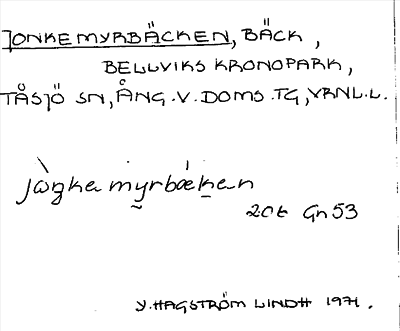 JONKEMYRBÄCKEN, BÄCK,
BELLVIKS KRONOPARK,
TÅSJÖ SN, ÅNG.V.DOMS.TG, VRNL.L.
jòŋkamy̰rbák̠an
20t Gn53
Y. HAGSTRÖM LINDH 1971.